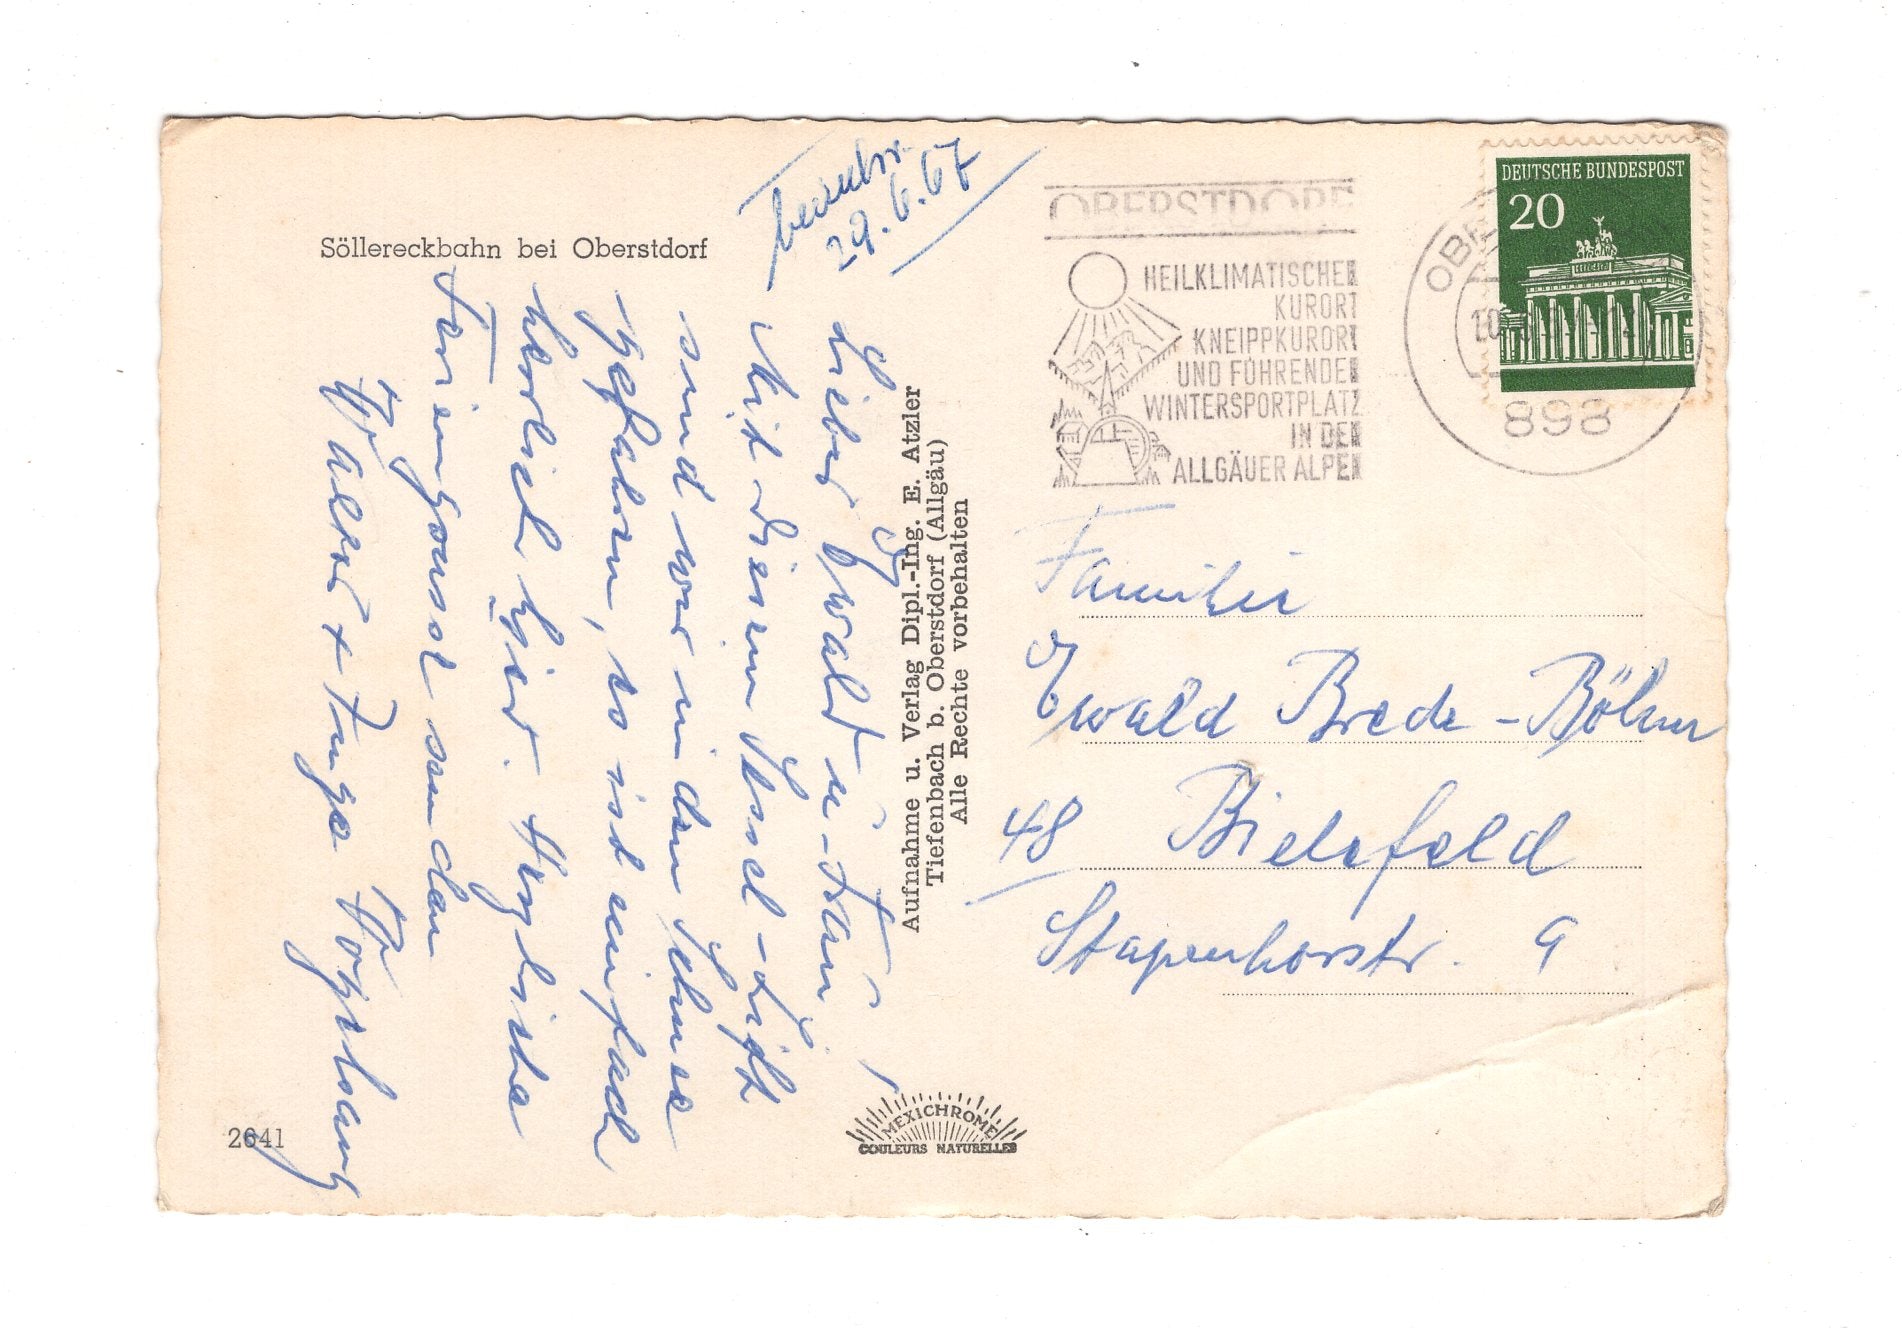 Söllereckbahn bei Oberstdorf
29.6.67
Lieber Ewald u. Frau,
Mit diesem Sessel-Lift
sind wir in den Schnee
gefahren, es ist einfach
herrlich hier. Herzliche
Feriengrüsse senden
Walter + Inge Vogelsang
2641
Aufnahme u. Verlag Dipl.-Ing. E. Atzler
Tiefenbach b. Oberstdorf (Allgäu)
Alle Rechte vorbehalten
MEXICHROME
COULEURS NATURELLES
OBERSTDORF
HEILKLIMATISCHER
KURORT
KNEIPPKURORT
UND FÜHRENDER
WINTERSPORTPLATZ
IN DEN
ALLGÄUER ALPEN
DEUTSCHE BUNDESPOST
20
898
Familie
Ewald Brede-Böhmer
48 Bielefeld
Stapenhorststr. 9